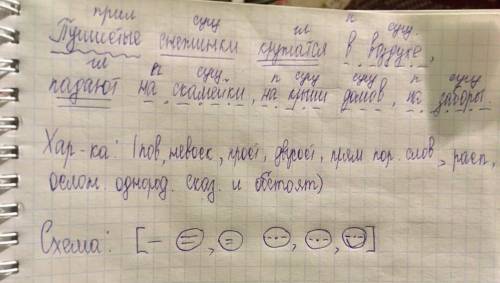 прил сущ гл п сущ.
Пушистые снежинки кружатся в воздухе,
гл п сущ. п сущ. сущ п сущ
падают на скамейки, на крыши домов, на заборы
Хар-ка: (пов, невоск, прост, двусост, прям пор. слов, расп,
ослож. однород. сказ. и обстоят)
Схема: [— (=), (=) (-·-), (-·-), (-·-)]